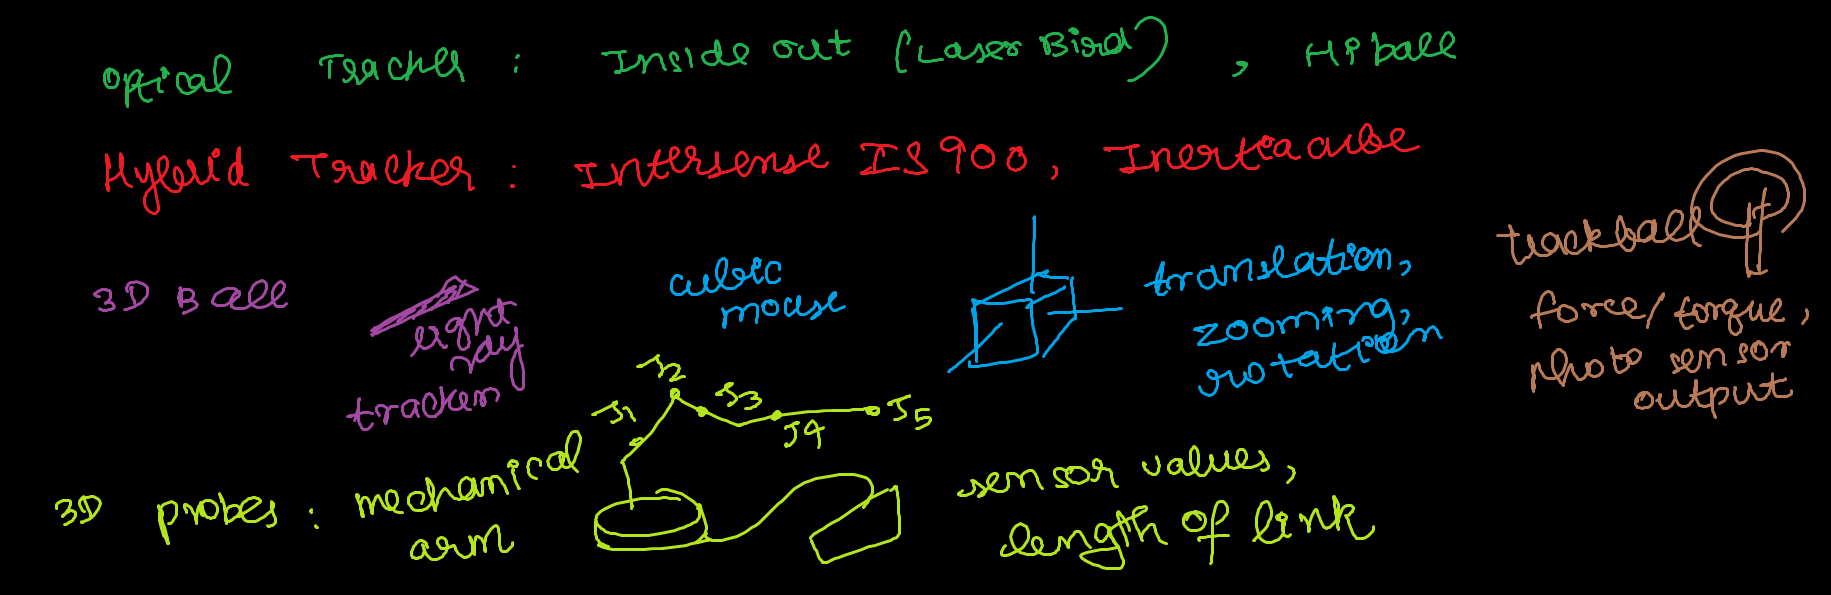 Optical Tracker : Inside out (Laser Bird) , HiBall
Hybrid Tracker : Intersense IS 900, Inertiacube
3D Ball
light
ray
tracker
cubic
mouse
translation,
zooming,
rotation
trackball
force/torque,
photo sensor
output
3D probes : mechanical
arm
J1
J2
J3
J4
J5
sensor values,
length of link